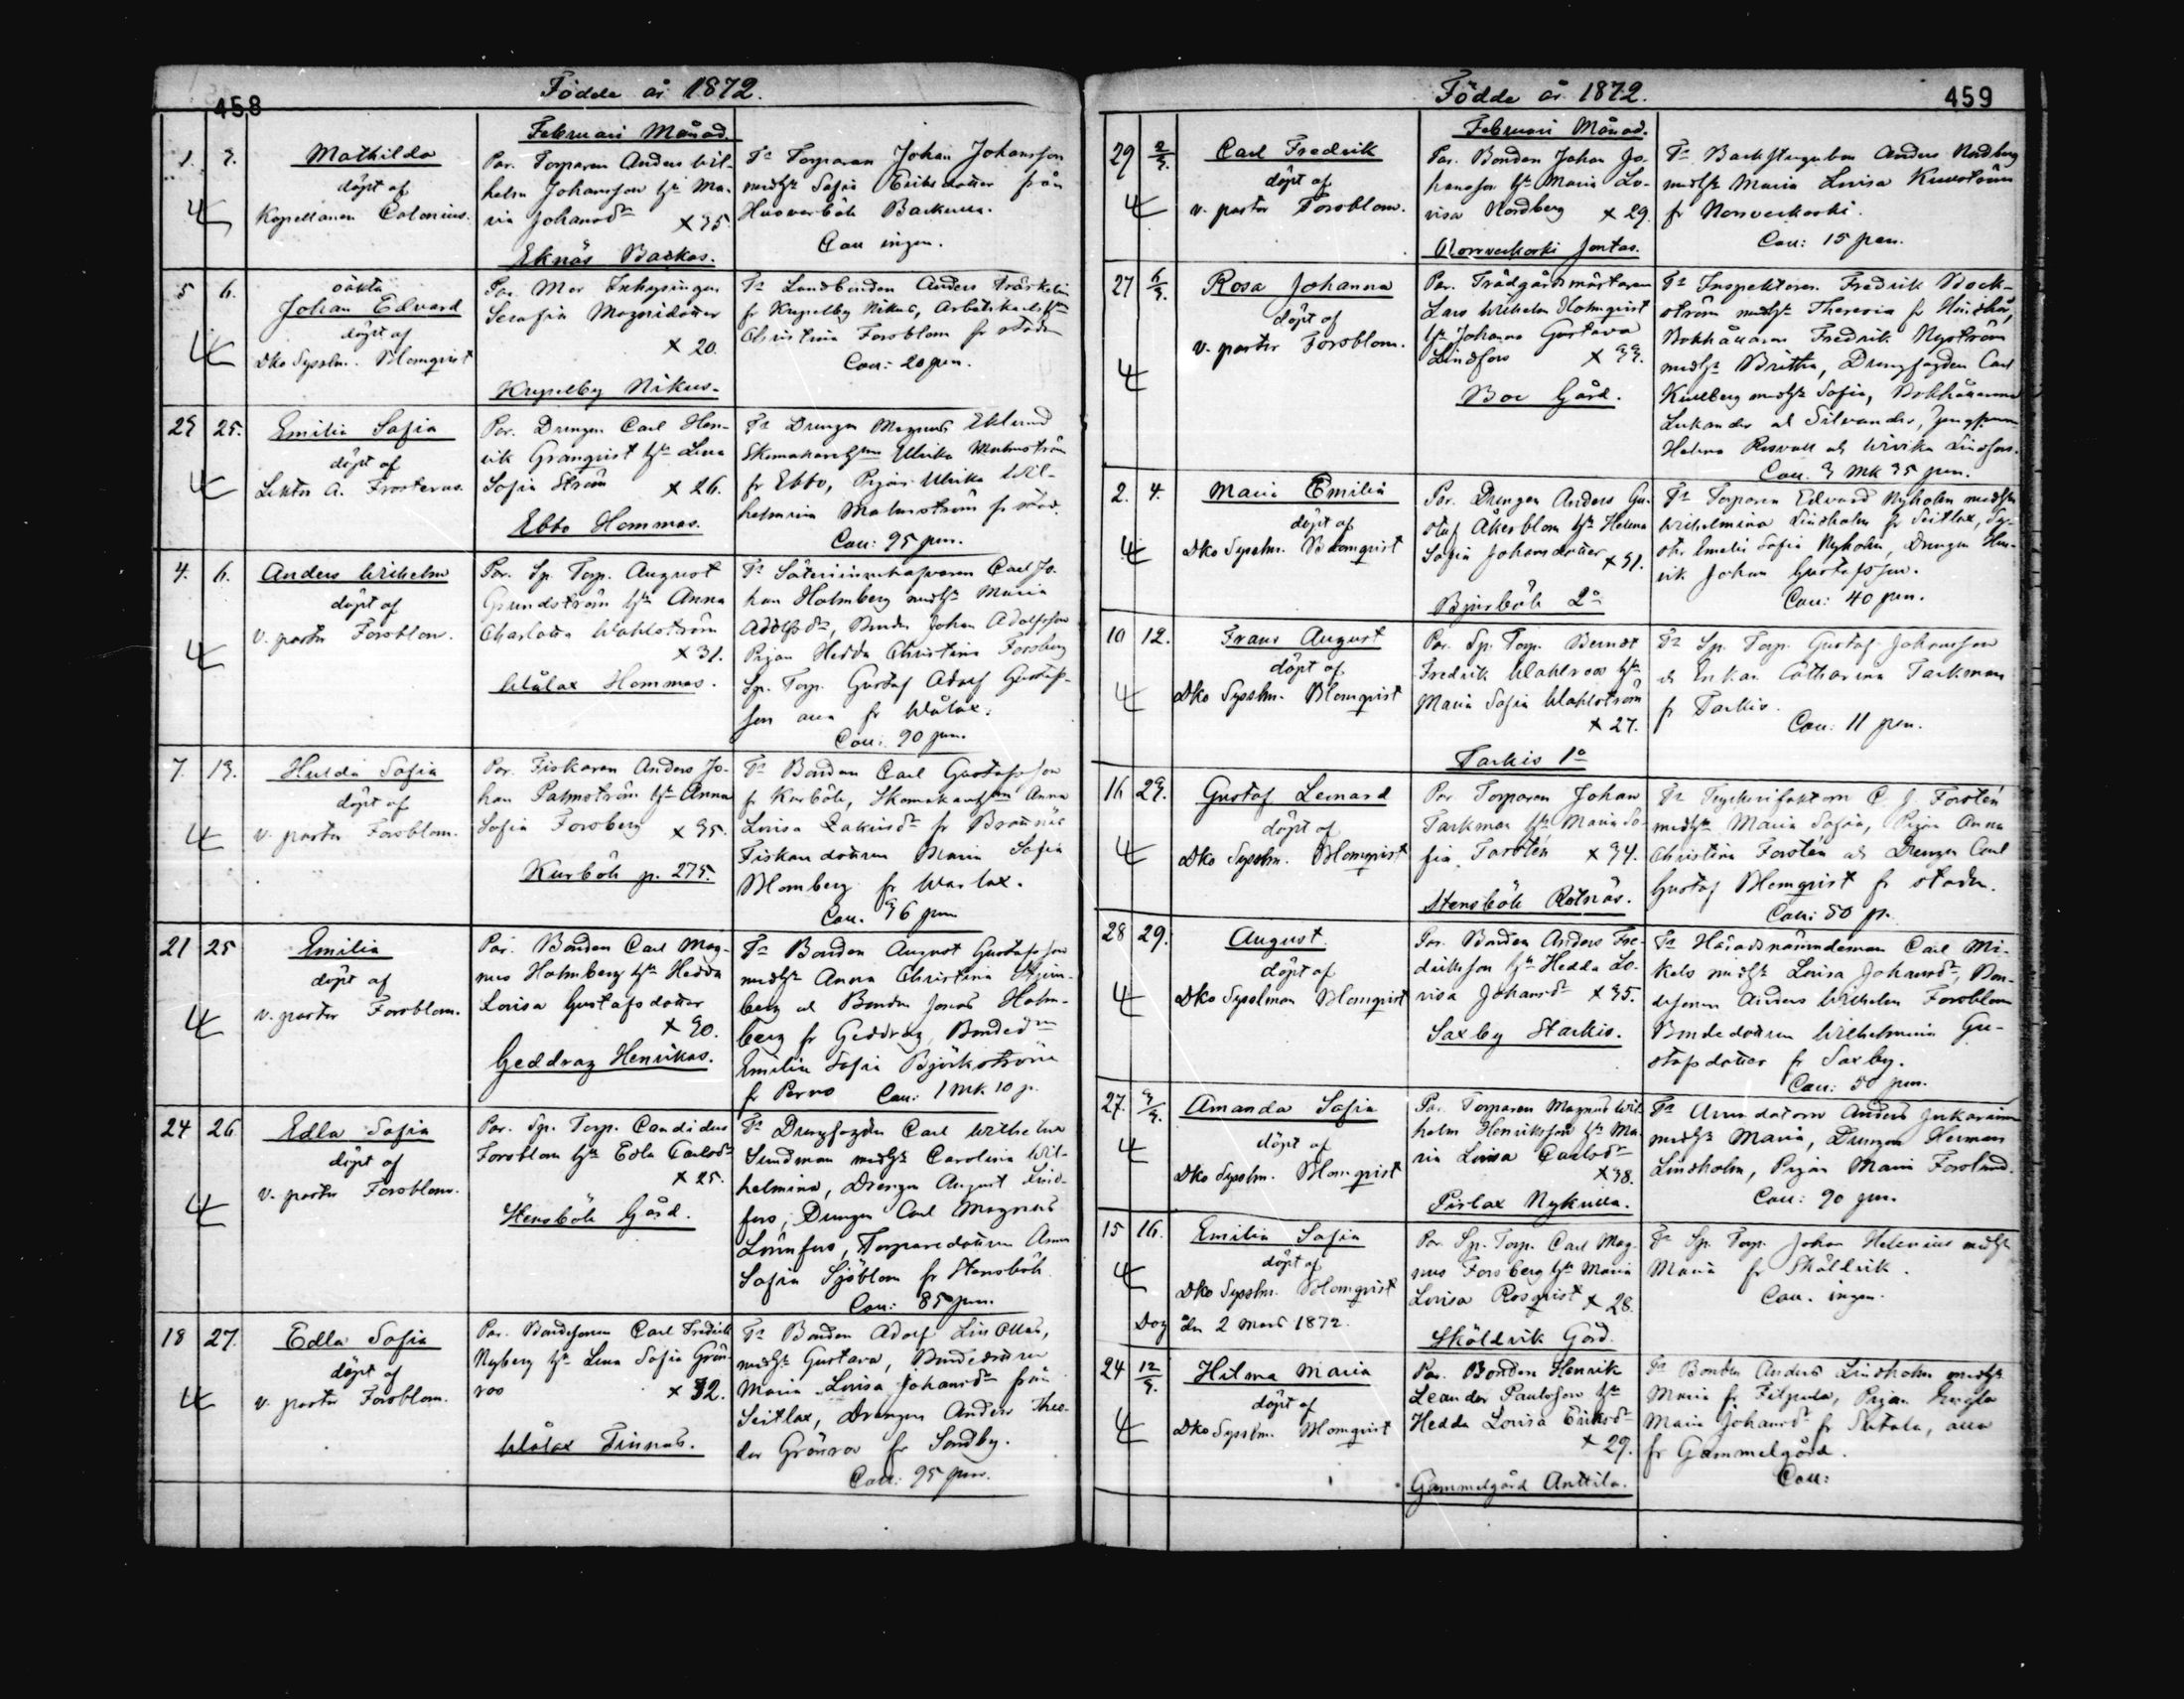 458
Födde år 1872.
Februari Månad.
1. 7. Mathilda
döpt af
Kapellanen Calonius.
Par. Torparen Anders Wil-
helm Johansson h:u Ma-
ria Johansd:r x 35.
Eknäs Backas.
F:a Torparen Johan Johansson
med h:u Sofia Eriksdotter från
Backulla.
Coll ingen.
5 6. oäkta
Johan Edvard
döpt af
Dko Sysslm. Blomqvist
Par. Mor Inhysingen
Serafia Magnidotter
x 20.
Krepelby Nikus.
F:a Landbonden Anders Träskelin
fr Krepelby Nikus, Arbetskarlsh:u
Christina Forsblom fr staden
Coll: 20 pen.
23 25. Emilia Sofia
döpt af
Lektor A. Frosterus.
Par. Drengen Carl Hen-
rik Granqvist h:u Lena
Sofia Ström x 26.
Ebbo Hommas.
F:a Drengen Magnus Eklund
Skomakareh:un Ulrika Malmström
fr Ebbo, Pigan Ulrika Wil-
helmina Malmström fr stad.
Coll: 95 pen.
4. 6. Anders Wilhelm
döpt af
v. pastor Forsblom.
Par. Sp. Torp. August
Grundström h:u Anna
Charlotta Wahlström
x 31.
Wålax Hommas.
F:a Säteriinnehafvaren Carl Jo-
han Holmberg med h:u Maria
Adolfsd:r, Bonden Johan Adolfsson
Pigan Hedda Christina Forsberg
Sp. Torp. Gustaf Adolf Gustafs-
son alla fr Wålax.
Coll: 90 pen.
7. 13. Hulda Sofia
döpt af
v. pastor Forsblom.
Par. Fiskaren Anders Jo-
han Palmström h:u Anna
Sofia Forsberg x 35.
Kurböle p. 275.
F:a Bonden Carl Gustafsson
fr Kurböle, Skomakareh:un Anna
Lovisa Zakrisd:r fr Bramnäs
Fiskaredottren Maria Sofia
Blomberg fr Warlax.
Coll. 36 pen
21 25 Emilia
döpt af
v. pastor Forsblom.
Par. Bonden Carl Mag-
nus Holmberg h:u Hedda
Lovisa Gustafsdotter
x 30.
Geddrag Henrikas.
F:a Bonden August Gustafsson
med h:u Anna Christina Stjern-
berg och Bonden Jonas Holm-
berg fr Geddrag, Bonded:n
Emilia Sofia Björkström
fr Perno Coll: 1 mk 10 p.
24 26 Edla Sofia
döpt af
v. pastor Forsblom.
Par. Sp. Torp. Candidus
Forsblom h:u Edla Carlsd:r
x 25.
Stensböle Gård.
F:a Drengfogden Carl Wilhelm
Sundman med h:u Carolina Wil-
helmina, Drengen August Lind-
fors, Drengen Carl Magnus
Lönnfors, Torparedottren Anna
Sofia Sjöblom fr Stensböle
Coll: 85 pen.
18 27. Edla Sofia
döpt af
v. pastor Forsblom.
Par. Bondesonen Carl Fredrik
Nyberg h:u Lena Sofia Grön-
roos x 32.
Wålax Finnas.
F:a Bonden Adolf Lill Ollas,
med h:u Gustava, Bondedottren
Maria Lovisa Johansd:r från
Seitlax, Drengen Anders Theo-
dor Grönroos fr Sondby.
Coll: 95 pen.
459
Födde år 1872.
Februari Månad.
29 2/3. Carl Fredrik
döpt af
v. pastor Forsblom.
Par. Bonden Johan Jo-
hansson h:u Maria Lo-
visa Nordberg x 29.
Norrveckoski Jontas.
F:a Backstugubon Anders Nordberg
med h:u Maria Lovisa
fr Norrveckoski.
Coll: 15 pen.
27 6/3. Rosa Johanna
döpt af
v. pastor Forsblom.
Par. Trädgårdsmästaren
Lars Wilhelm Holmqvist
h:u Johanna Gustava
Lindfors x 33.
Boe Gård.
F:a Inspektoren Fredrik Bock-
ström med h:u Theresia fr Haikko,
Bokhållaren Fredrik Nyström
med h:u Britha, Drengfogden Carl
Kullberg med h:u Sofia, Bokhållarne
Lukander och Silvander, Jungfrurna
Helena Rosvall och Wivika Lindfors.
Coll. 3 mk 35 pen.
2. 4. Maria Emilia
döpt af
Dko Sysslm. Blomqvist
Par. Drengen Anders Gu-
staf Åkerblom h:u Helena
Sofia Johansdotter x 31.
Bjurböle 2:o
F:a Torparen Edvard Nyholm med h:u
Wilhelmina Lindholm fr Seitlax, Sy-
ster Emelie Sofia Nyholm, Drengen Hen-
rik Johan Gustafsson.
Coll: 40 pen.
10 12. Frans August
döpt af
Dko Sysslm. Blomqvist
Par. Sp. Torp. Berndt
Fredrik Wahlroos h:u
Maria Sofia Wahlström
x 27.
Tarkis 1:o
F:a Sp. Torp. Gustaf Johansson
och Enkan Catharina Tarkman
fr Tarkis.
Coll: 11 pen.
16 23. Gustaf Leonard
döpt af
Dko Sysslm. Blomqvist
Par Torparen Johan
Tarkman h:u Maria So-
fia Forstén x 34.
Stensböle Rotnäs.
F:a Tryckerifaktorn C. J. Forstén
med h:u Maria Sofia, Pigan Anna
Christina Forstén och Drengen Carl
Gustaf Blomqvist fr staden.
Coll: 50 p.
28 29. August
döpt af
Dko Sysslman Blomqvist
Par. Bonden Anders Fre-
driksson h:u Hedda Lo-
visa Johansd:r x 35.
Saxby Starkis.
F:a Häradsnämndeman Carl Mi-
kels med h:u Lovisa Johansd:r, Bon-
desonen Anders Wilhelm Forsblom
Bondedottren Wilhelmina Gu-
stafsdotter fr Saxby.
Coll: 50 pen.
27. 3/3. Amanda Sofia
döpt af
Dko Sysslm. Blomqvist
Par. Torparen Magnus Wil-
helm Henriksson h:u Ma-
ria Lovisa Carlsd:r
x 38.
Pirlax Nykulla.
F:a Anders
med h:u Maria, Drengen Herman
Lindholm, Pigan Maria Forslund.
Coll: 90 pen.
15 16. Emilia Sofia
döpt af
Dko Sysslm. Blomqvist
Dog den 2 Mars 1872.
Par Sp. Torp. Carl Mag-
nus Forsberg h:u Maria
Lovisa Rosqvist x 28.
Sköldvik Gård.
F:a Sp. Torp. Johan Helenius med h:u
Maria fr Sköldvik.
Coll. ingen.
24 12/3. Hilma Maria
döpt af
Dko Sysslm. Blomqvist
Par. Bonden Henrik
Leander Paulsson h:u
Hedda Lovisa Eriksd:r
x 29.
Gammelgård Anttila.
F:a Bonden Anders Lindholm med h:u
Maria fr Filpula, Pigan
Maria Johansd:r fr alla
fr Gammelgård.
Coll: